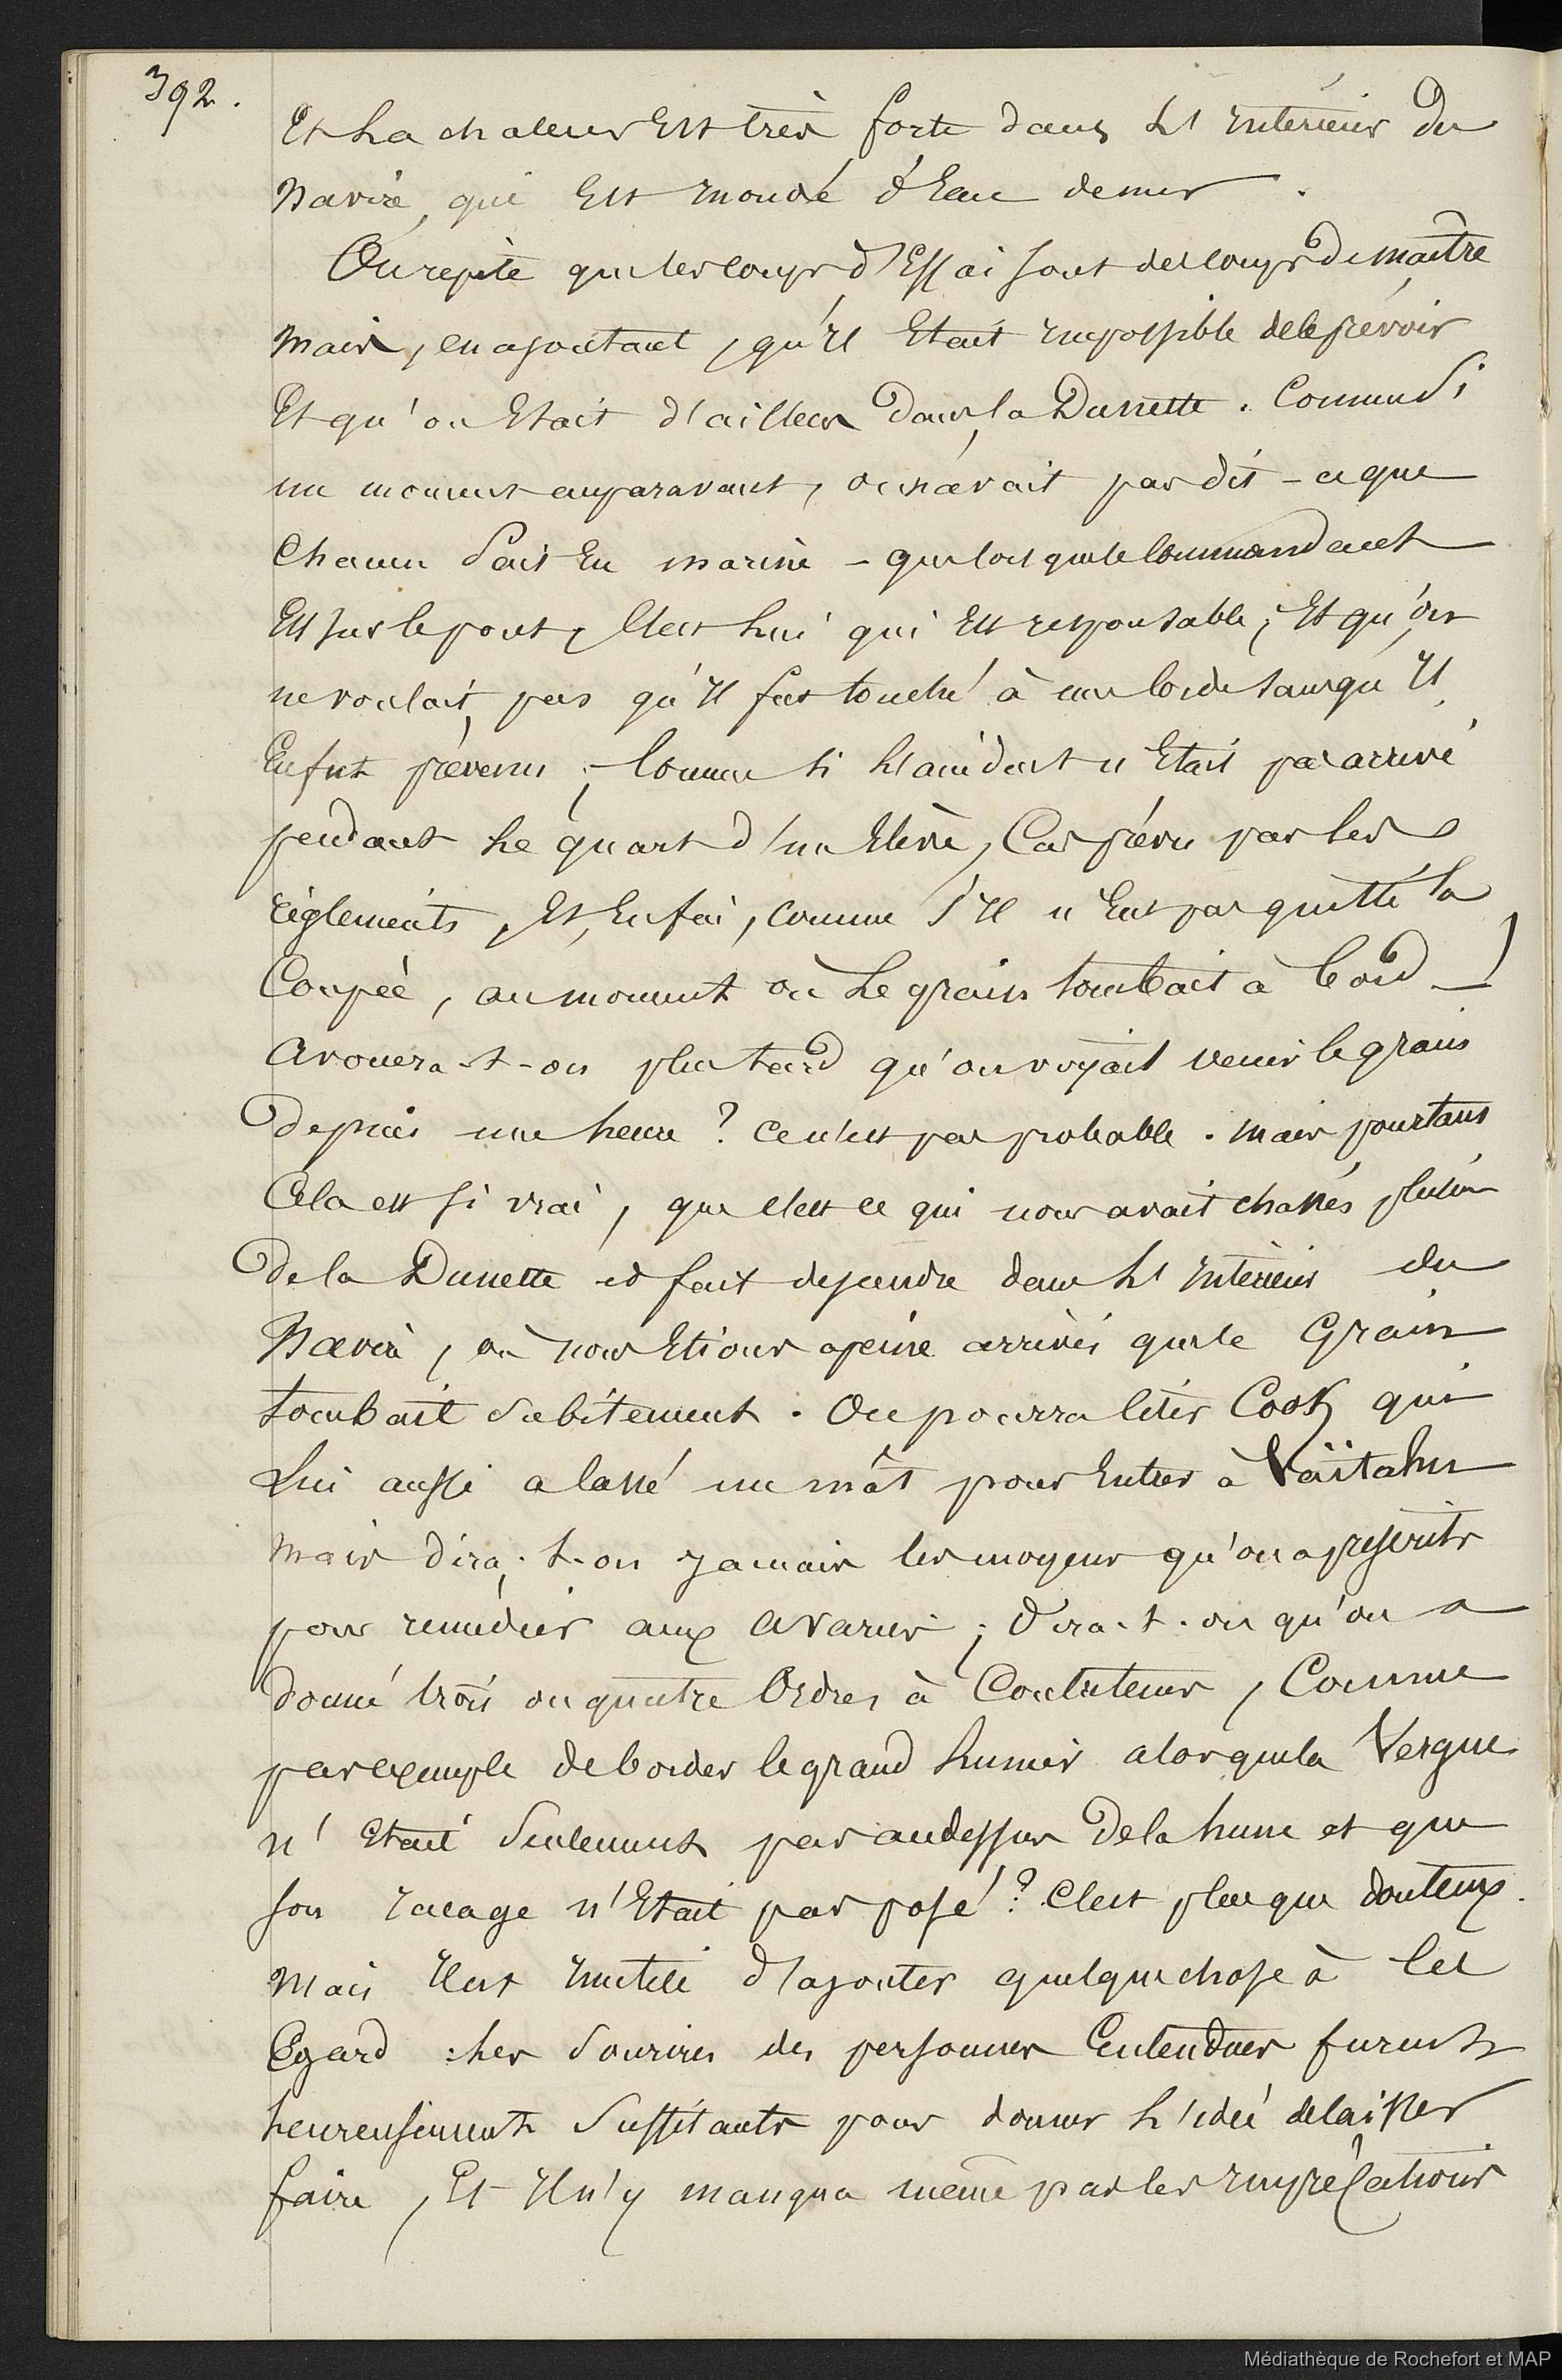 392.
Et La chaleur Est très forte dans L'Intérieur Du
Navire, qui Est Inondé d'Eau de mer.
On repète que les coups d'Essai sont des coups De maître
mais, en ajoutant, qu'Il Etait Impossible de le prévoir
Et qu'on Etait d'ailleurs Dans la Dunette. Comme Si
un moment auparavant, on n'avait pas dit - ce que
Chacun Sait En marine - que lorsque le Commandant
Est sur le pont, C'est Lui qui Est responsable, Et qu'on
ne voulait pas qu'Il fut touché à une corde sans qu'Il
En fut prévenu; - Comme si L'accident n'Etait pas arrivé
pendant Le quart d'un Elève, Cas prévu par les
règlements, Et, Enfin, comme S'Il n'Eut pas quitté la
Coupée, au moment où Le grain tombait à bord -!
Avouera-t-on plus tard qu'on voyait venir le grain
Depuis une heure? Ce n'est pas probable. Mais pourtant
Cela est si vrai, que c'est ce qui nous avait chassés plusieurs
De la Dunette et fait descendre dans L'Intérieur du
Navire, où nous Etions à peine arrivés que le Grain
tombait Subitement. On pourra Citer Cook qui
Lui aussi a cassé un mât pour Entrer à Vaïtahu
mais dira-t-on jamais les moyens qu'on a prescrits
pour remédier aux avaries; Dira-t-on qu'on a
donné trois ou quatre Ordres à Contretems, Comme
par exemple de border le grand hunier alors que la Vergue
n'Etait Seulement pas au dessus De la hune et que
son racage n'Etait pas posé? C'est plus que douteux.
Mais Il est Inutile d'ajouter quelque chose à Cet
Egard: Les Sourires des personnes Entendues furent
heureusement Suffisants pour donner L'idée de laisser
faire, Et Il n'y manqua même pas les Imprécations
Médiathèque de Rochefort et MAP